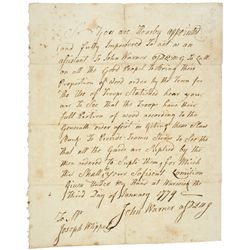 Sr You are Hereby appointed
and fully Impowered To act as an
assistant To John Warner to Call
on all the Good People to Bring Their
Proportion of wood order by the Town for
the Use of Troops Stationed hear you
are To See that the Troops have their
full Portion of wood according to the
General order
To Provide Teams
that all the Gards are Suplied by the
men ordered to Suply them, for Which
this Shall be your Soficient Comition
Given under my Hand at Warwick the
Third Day of January 1779
John Warner
To Mr
Joseph Whipel